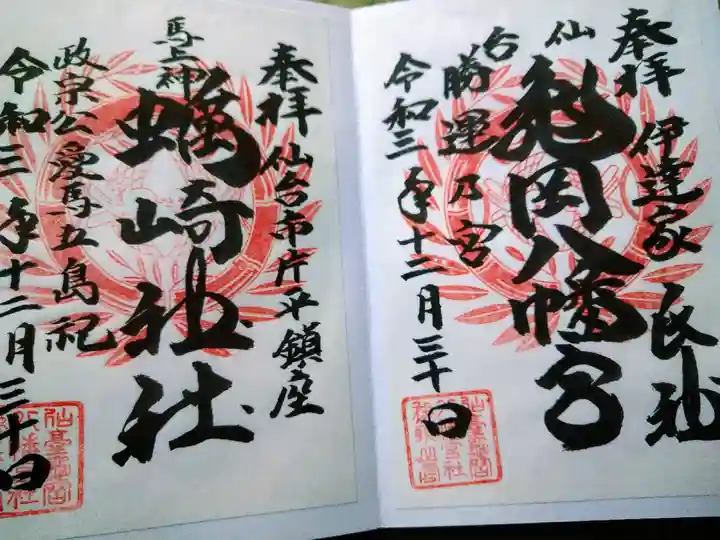 奉拝 伊達家氏神
亀岡八幡宮
仙台
勝運乃宮
令和三年十二月三十日
奉拝 仙台市片平鎮座
蠣崎神社
馬上神
政宗公愛馬五島祀
令和三年十二月三十日